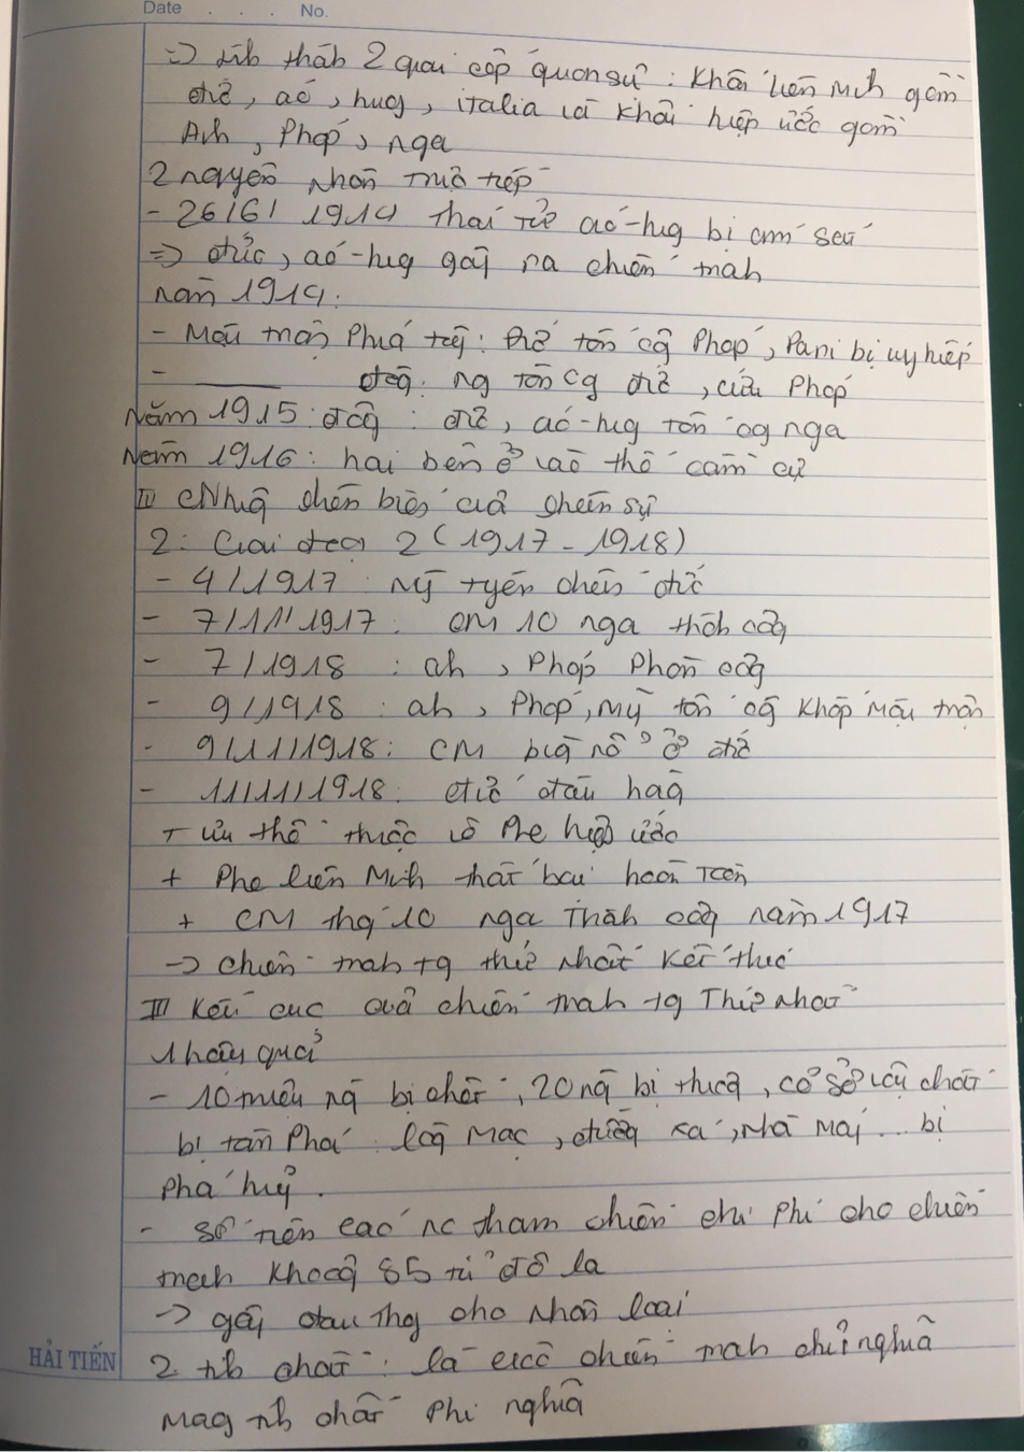 Date . . . No.
=> hìh thàh 2 giai cấp quân sự : Khối liên Mih gồm
đức, áo, hug, italia và khối hiệp ước gồm
Ah, Pháp, nga
2 nguyên nhân trực tiếp
- 26/6/ 1914 thái tử áo-hug bị ám sát
=> đức, áo-hug gây ra chiến trah
năm 1914:
- Mặt trận Phía tây: Đức tấn cg Pháp, Pari bị uy hiếp
- ——— đôg: ng tấn cg đức, cứu Pháp
Năm 1915: đôg : đức, áo-hug tấn cg nga
Năm 1916: hai bên ở vào thế cầm cự
II Nhữg diễn biến của chiến sự
2: Giai đoạn 2 (1917 - 1918)
- 4/1917: Mỹ tyên chiến đức
- 7/11/1917: CM 10 nga thàh côg
- 7/1918 : ah, Pháp Phản côg
- 9/1918 : ah, Pháp, Mỹ tấn cg Khắp Mặt trận
- 9/11/1918: CM bùg nổ ở đức
- 11/11/1918: đức đầu hàg
+ ưu thế thuộc về Phe hiệp ước
+ Phe liên Mih thất bại hoàn toàn
+ CM thg 10 nga Thàh côg năm 1917
-> chiến trah tg thứ nhất Kết thúc
III Kết cục của chiến trah tg Thứ nhất
1 hậu quả
- 10 triệu ng bị chết, 20 ng bị thươg, cơ sở vật chất
bị tàn Phá: làg Mạc, đườg xá, Nhà Máy... bị
Phá hủy.
- Số tiền các nc tham chiến chi Phí cho chiến
trah Khoảg 85 tỉ đô la
-> gây đau thg cho Nhân loại
HẢI TIẾN
2 tíh chất: là cuộc chiến trah chủ nghĩa
Mag tíh chất Phi nghĩa